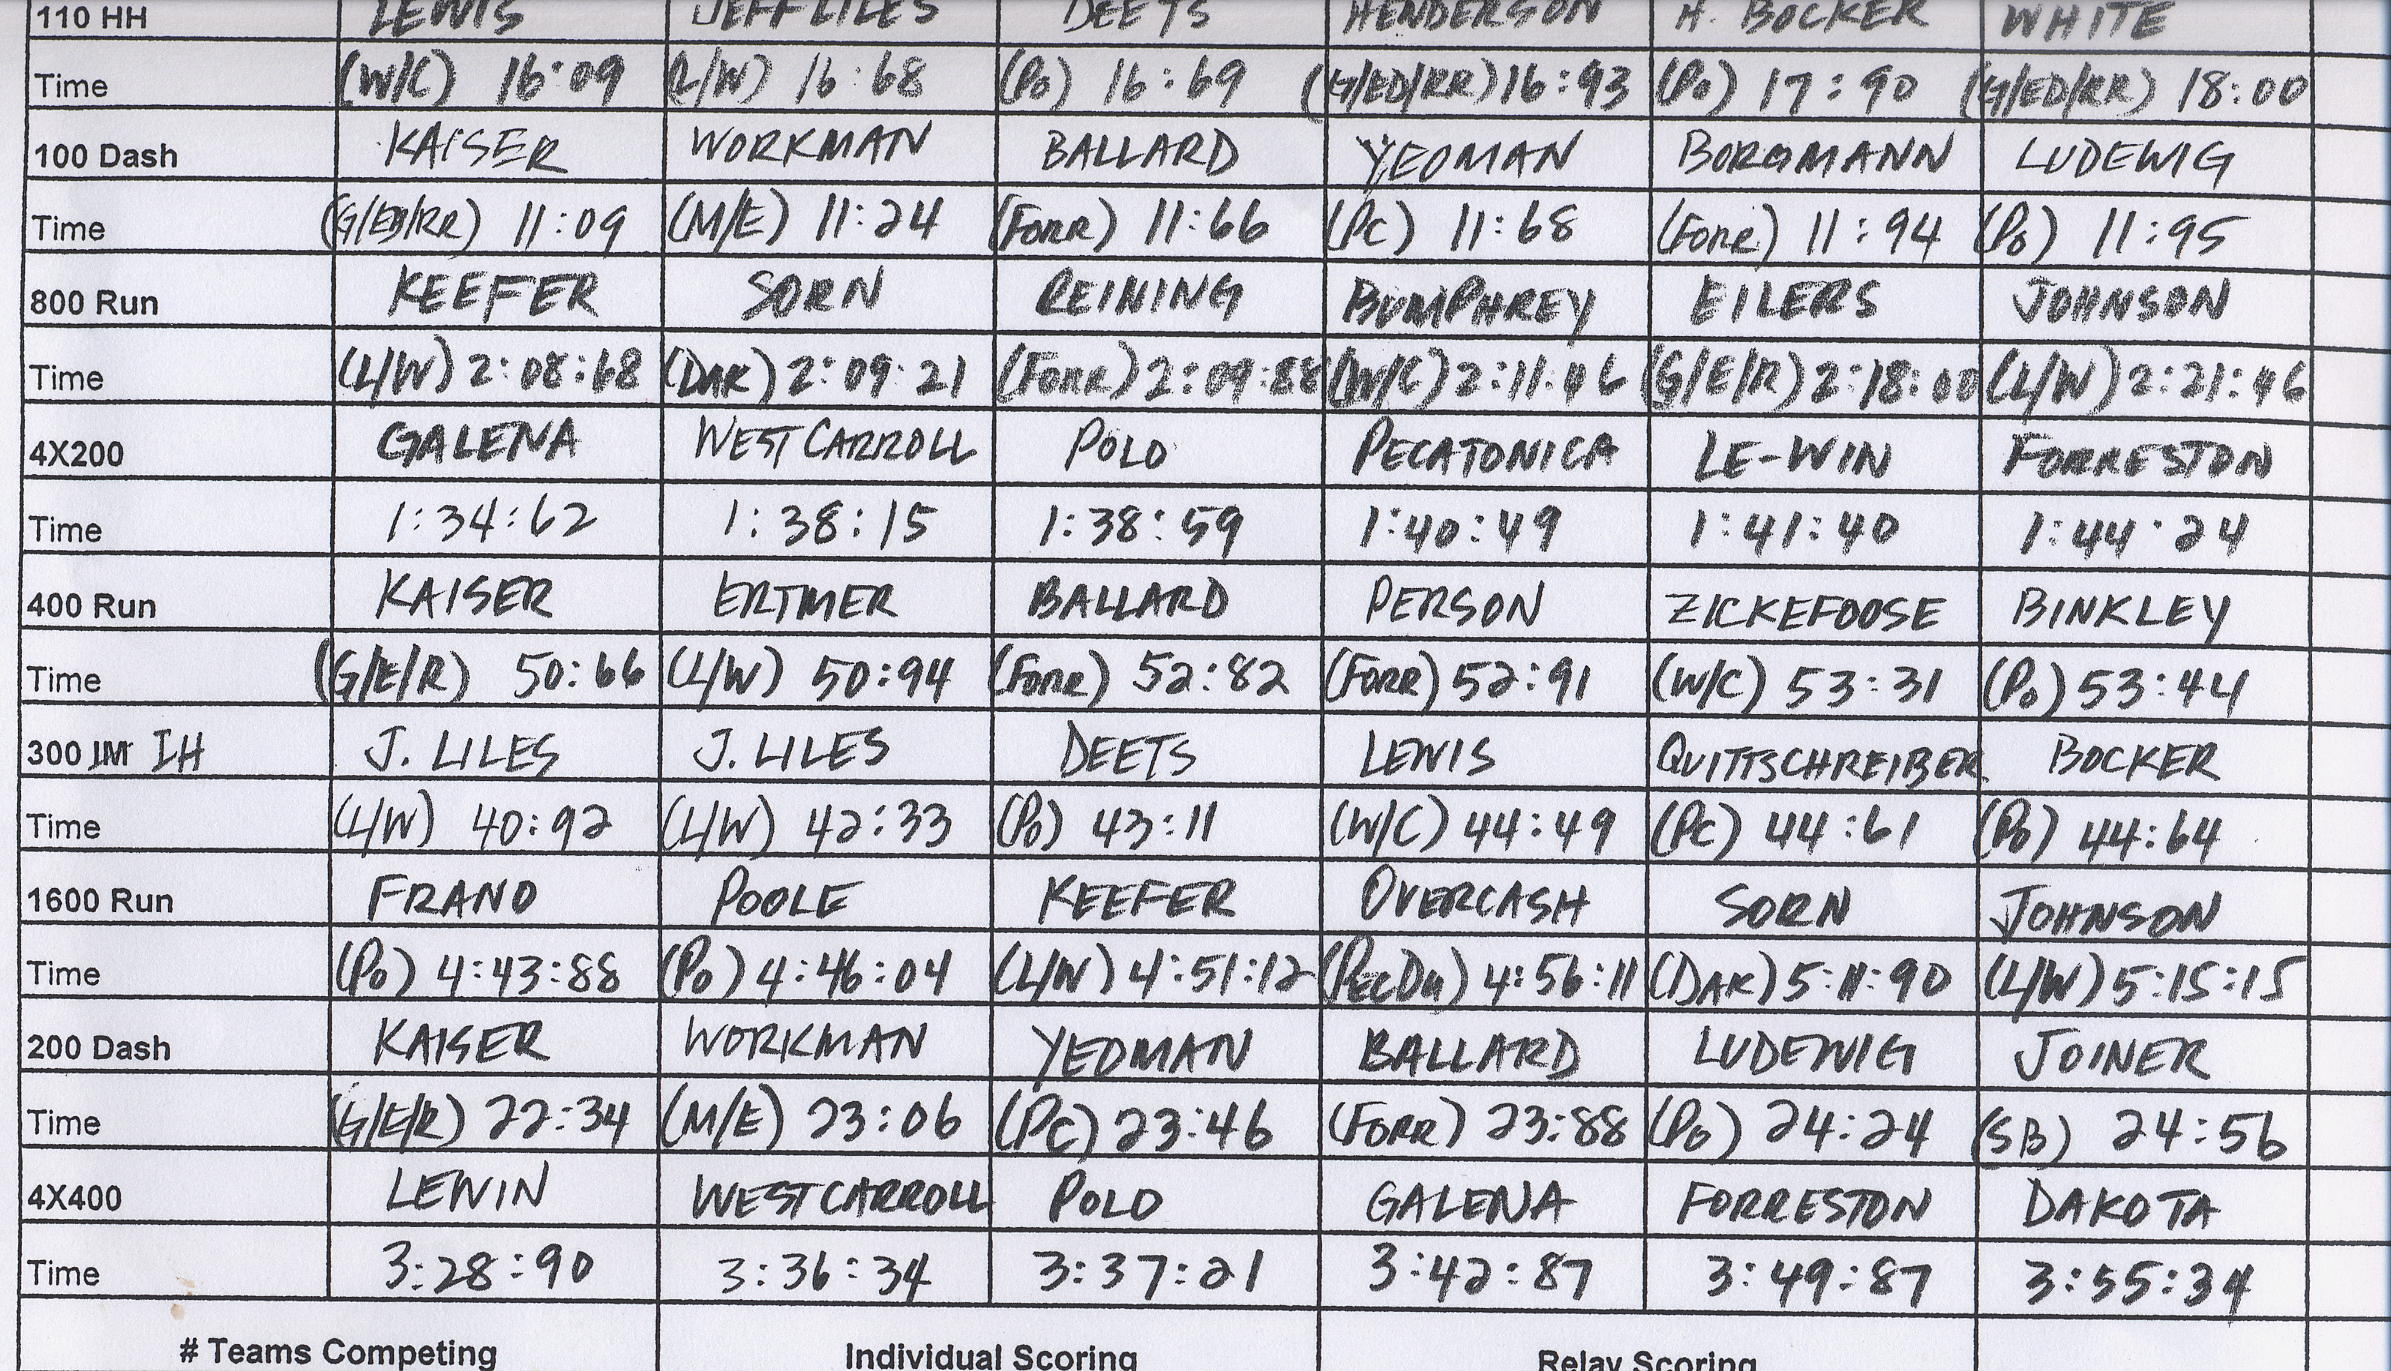 110 HH LEWIS JEFF LILES DEETS HENDERSON H. BOCKER WHITE
Time (W/C) 16:09 (L/W) 16:68 (Po) 16:69 (G/ED/RR) 16:93 (Po) 17:90 (G/ED/RR) 18:00
100 Dash KAISER WORKMAN BALLARD YEOMAN BORGMANN LUDEWIG
Time (G/ED/RR) 11:09 (M/E) 11:24 (FORR) 11:66 (PC) 11:68 (FORR) 11:94 (Po) 11:95
800 Run KEEFER SORN REINING BUMPHREY EILERS JOHNSON
Time (L/W) 2:08:68 (DAK) 2:09:21 (FORR) 2:09:88 (W/C) 2:11:46 (G/E/R) 2:18:00 (L/W) 2:21:46
4X200 GALENA WEST CARROLL POLO PECATONICA LE-WIN FORRESTON
Time 1:34:62 1:38:15 1:38:59 1:40:49 1:41:40 1:44:24
400 Run KAISER ERTMER BALLARD PERSON ZICKEFOOSE BINKLEY
Time (G/E/R) 50:66 (L/W) 50:94 (FORR) 52:82 (FORR) 52:91 (W/C) 53:31 (Po) 53:44
300 IM IH J. LILES J. LILES DEETS LEWIS QUITTSCHREIBER BOCKER
Time (L/W) 40:92 (L/W) 42:33 (Po) 43:11 (W/C) 44:49 (PC) 44:61 (Po) 44:64
1600 Run FRANO POOLE KEEFER OVERCASH SORN JOHNSON
Time (Po) 4:43:88 (Po) 4:46:04 (L/W) 4:51:12 (PECDU) 4:56:11 (DAK) 5:11:90 (L/W) 5:15:15
200 Dash KAISER WORKMAN YEOMAN BALLARD LUDEWIG JOINER
Time (G/E/R) 22:34 (M/E) 23:06 (PC) 23:46 (FORR) 23:88 (Po) 24:24 (SB) 24:56
4X400 LEWIN WEST CARROLL POLO GALENA FORRESTON DAKOTA
Time 3:28:90 3:36:34 3:37:21 3:42:87 3:49:87 3:55:34
# Teams Competing Individual Scoring Relay Scoring